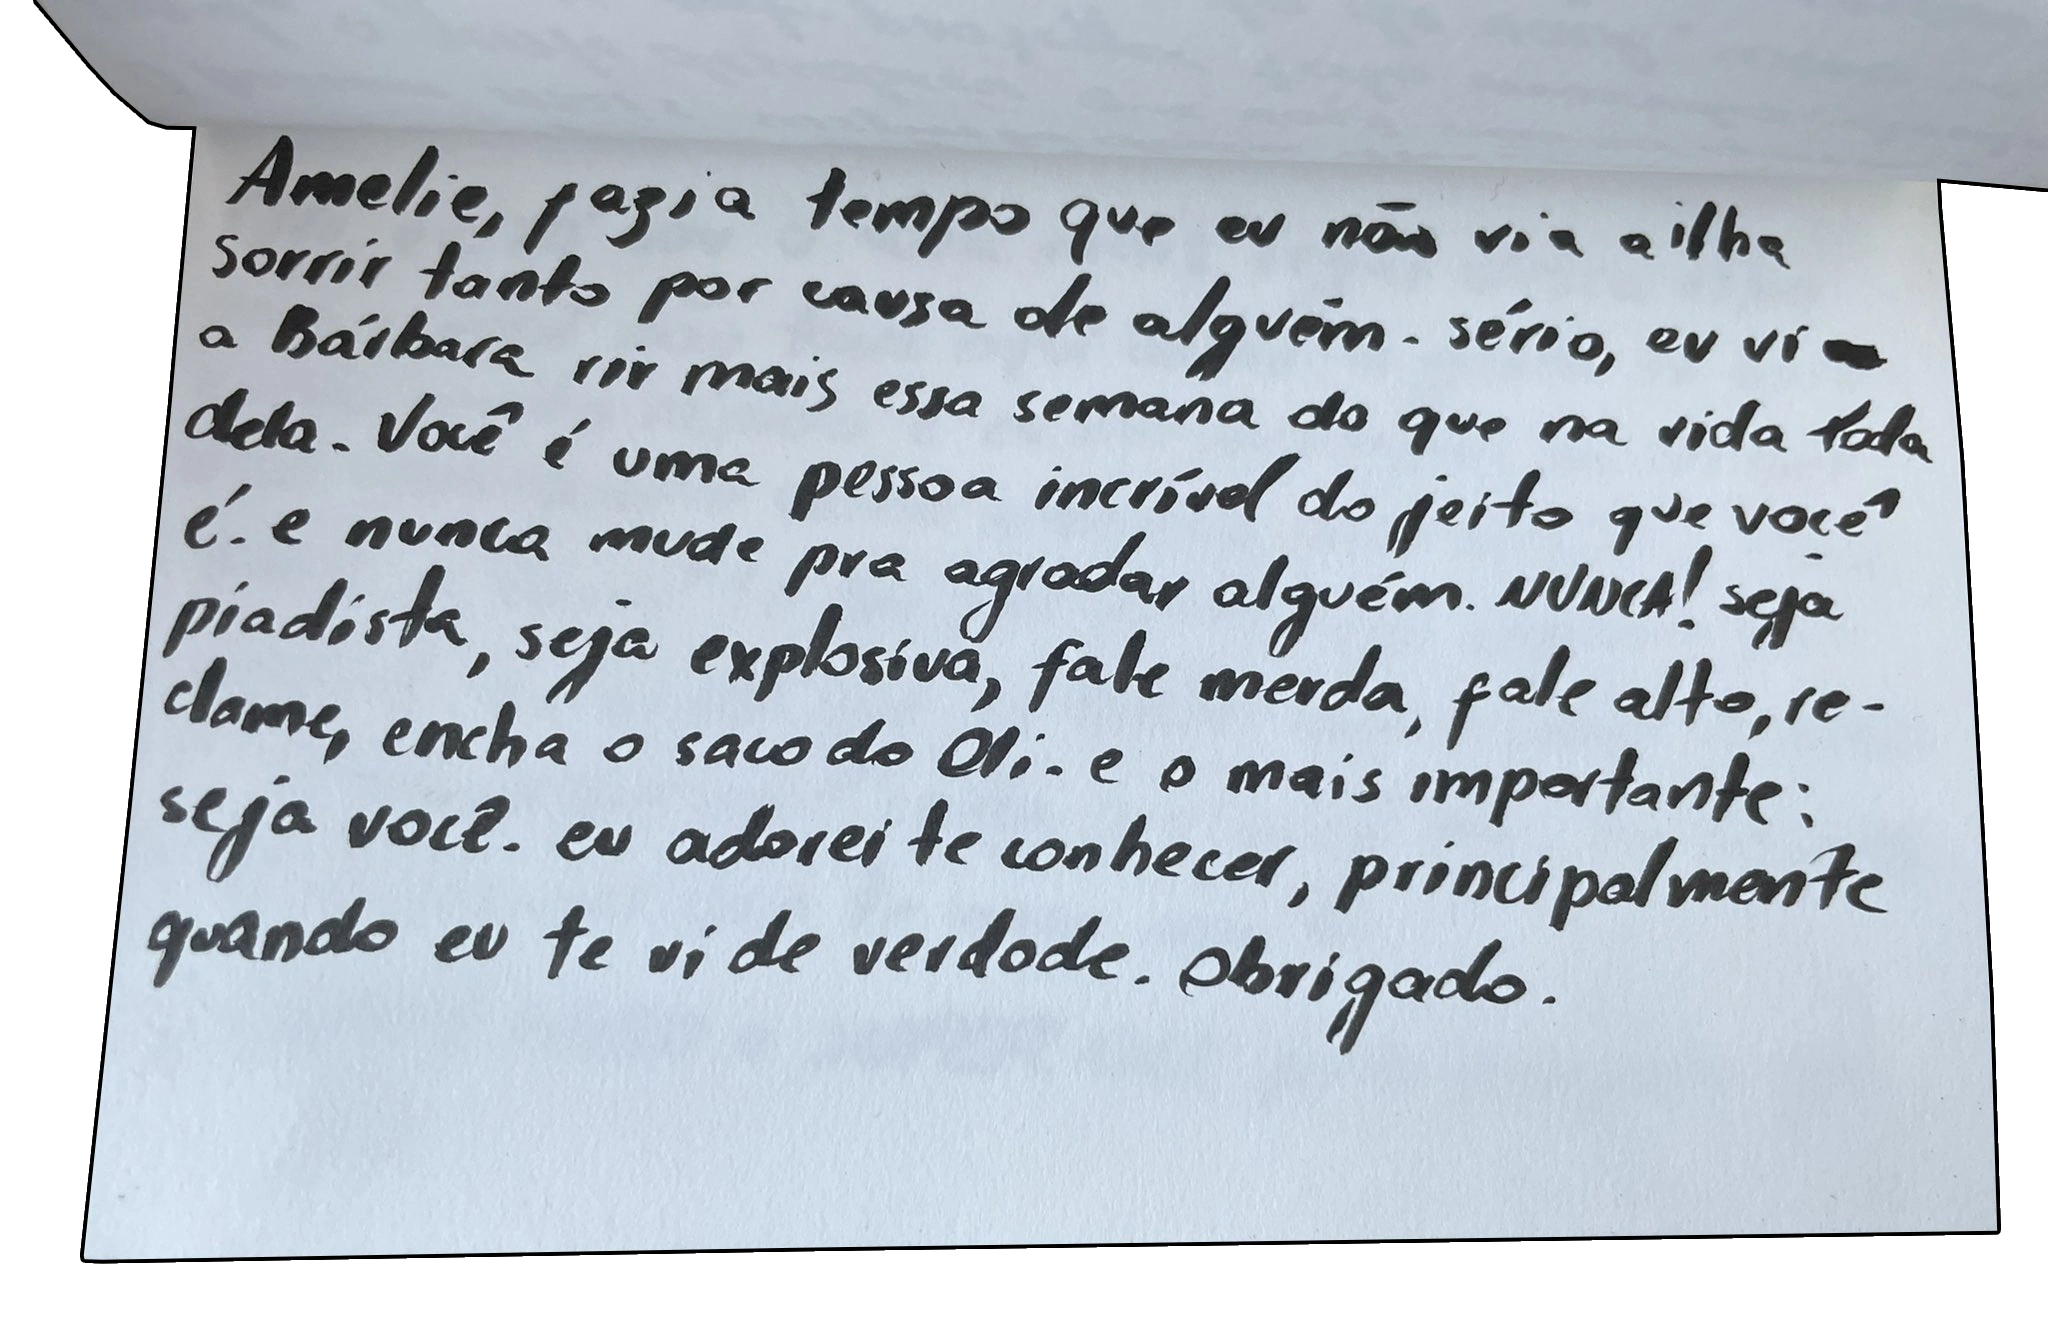 Amelie, fazia tempo que eu não via a ilha
sorrir tanto por causa de alguém. sério, eu vi
a Bárbara rir mais essa semana do que na vida toda
dela. Você é uma pessoa incrível do jeito que você
é. e nunca mude pra agradar alguém. NUNCA! seja
piadista, seja explosiva, fale merda, fale alto, re-
clame, encha o saco do Oli. e o mais importante:
seja você. eu adorei te conhecer, principalmente
quando eu te vi de verdade. Obrigado.